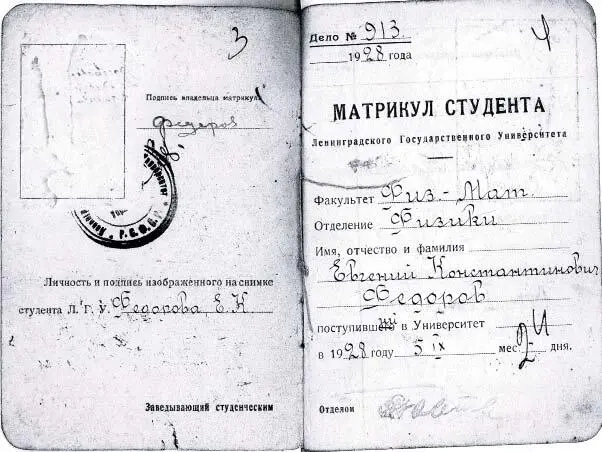 3
Подпись владельца матрикула
Федоров
Р.С.Ф.С.Р.
Личность и подпись изображенного на снимке
студента Л. Г. У. Федорова, Е. К
Заведывающий студенческим
4
Дело № 913
1928 года
МАТРИКУЛ СТУДЕНТА
Ленинградского Государственного Университета
Факультет Физ.-Мат.
Отделение Физики
Имя, отчество и фамилия
Евгений Константинович
Федоров
поступивший в Университет
в 1928 году 5 IX мес. 24 дня.
Отделом